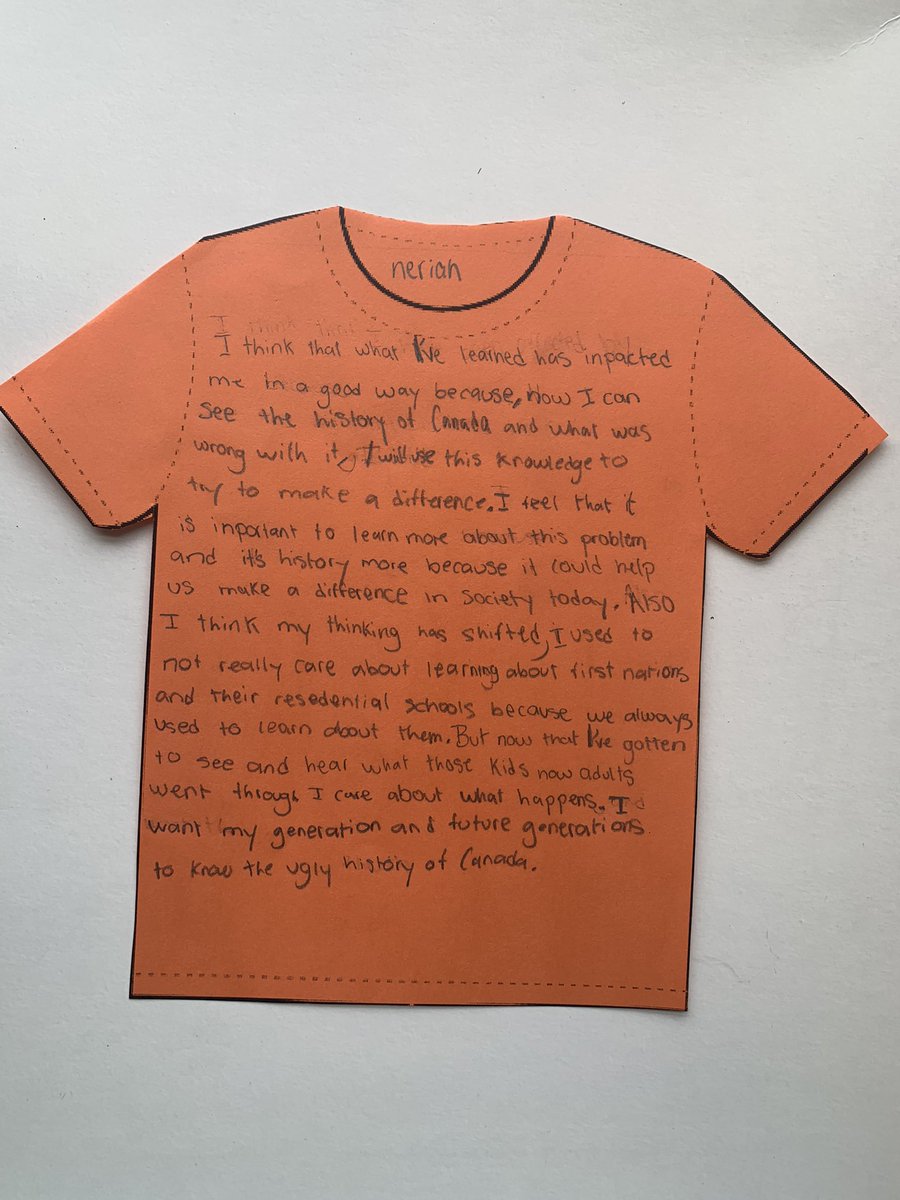 neriah
I think that
I think that what I've learned has inpacted
me in a good way because, Now I can
see the history of Canada and what was
wrong with it, I will use this knowledge to
try to make a difference. I feel that it
is inportant to learn more about this problem
and it's history more because it could help
us make a difference in society today. Also
I think my thinking has shifted, I used to
not really care about learning about first nations
and their resedential schools because we always
used to learn about them. But now that I've gotten
to see and hear what those kids now adults
went through I care about what happens. I
want my generation and future generations
to know the ugly history of Canada.